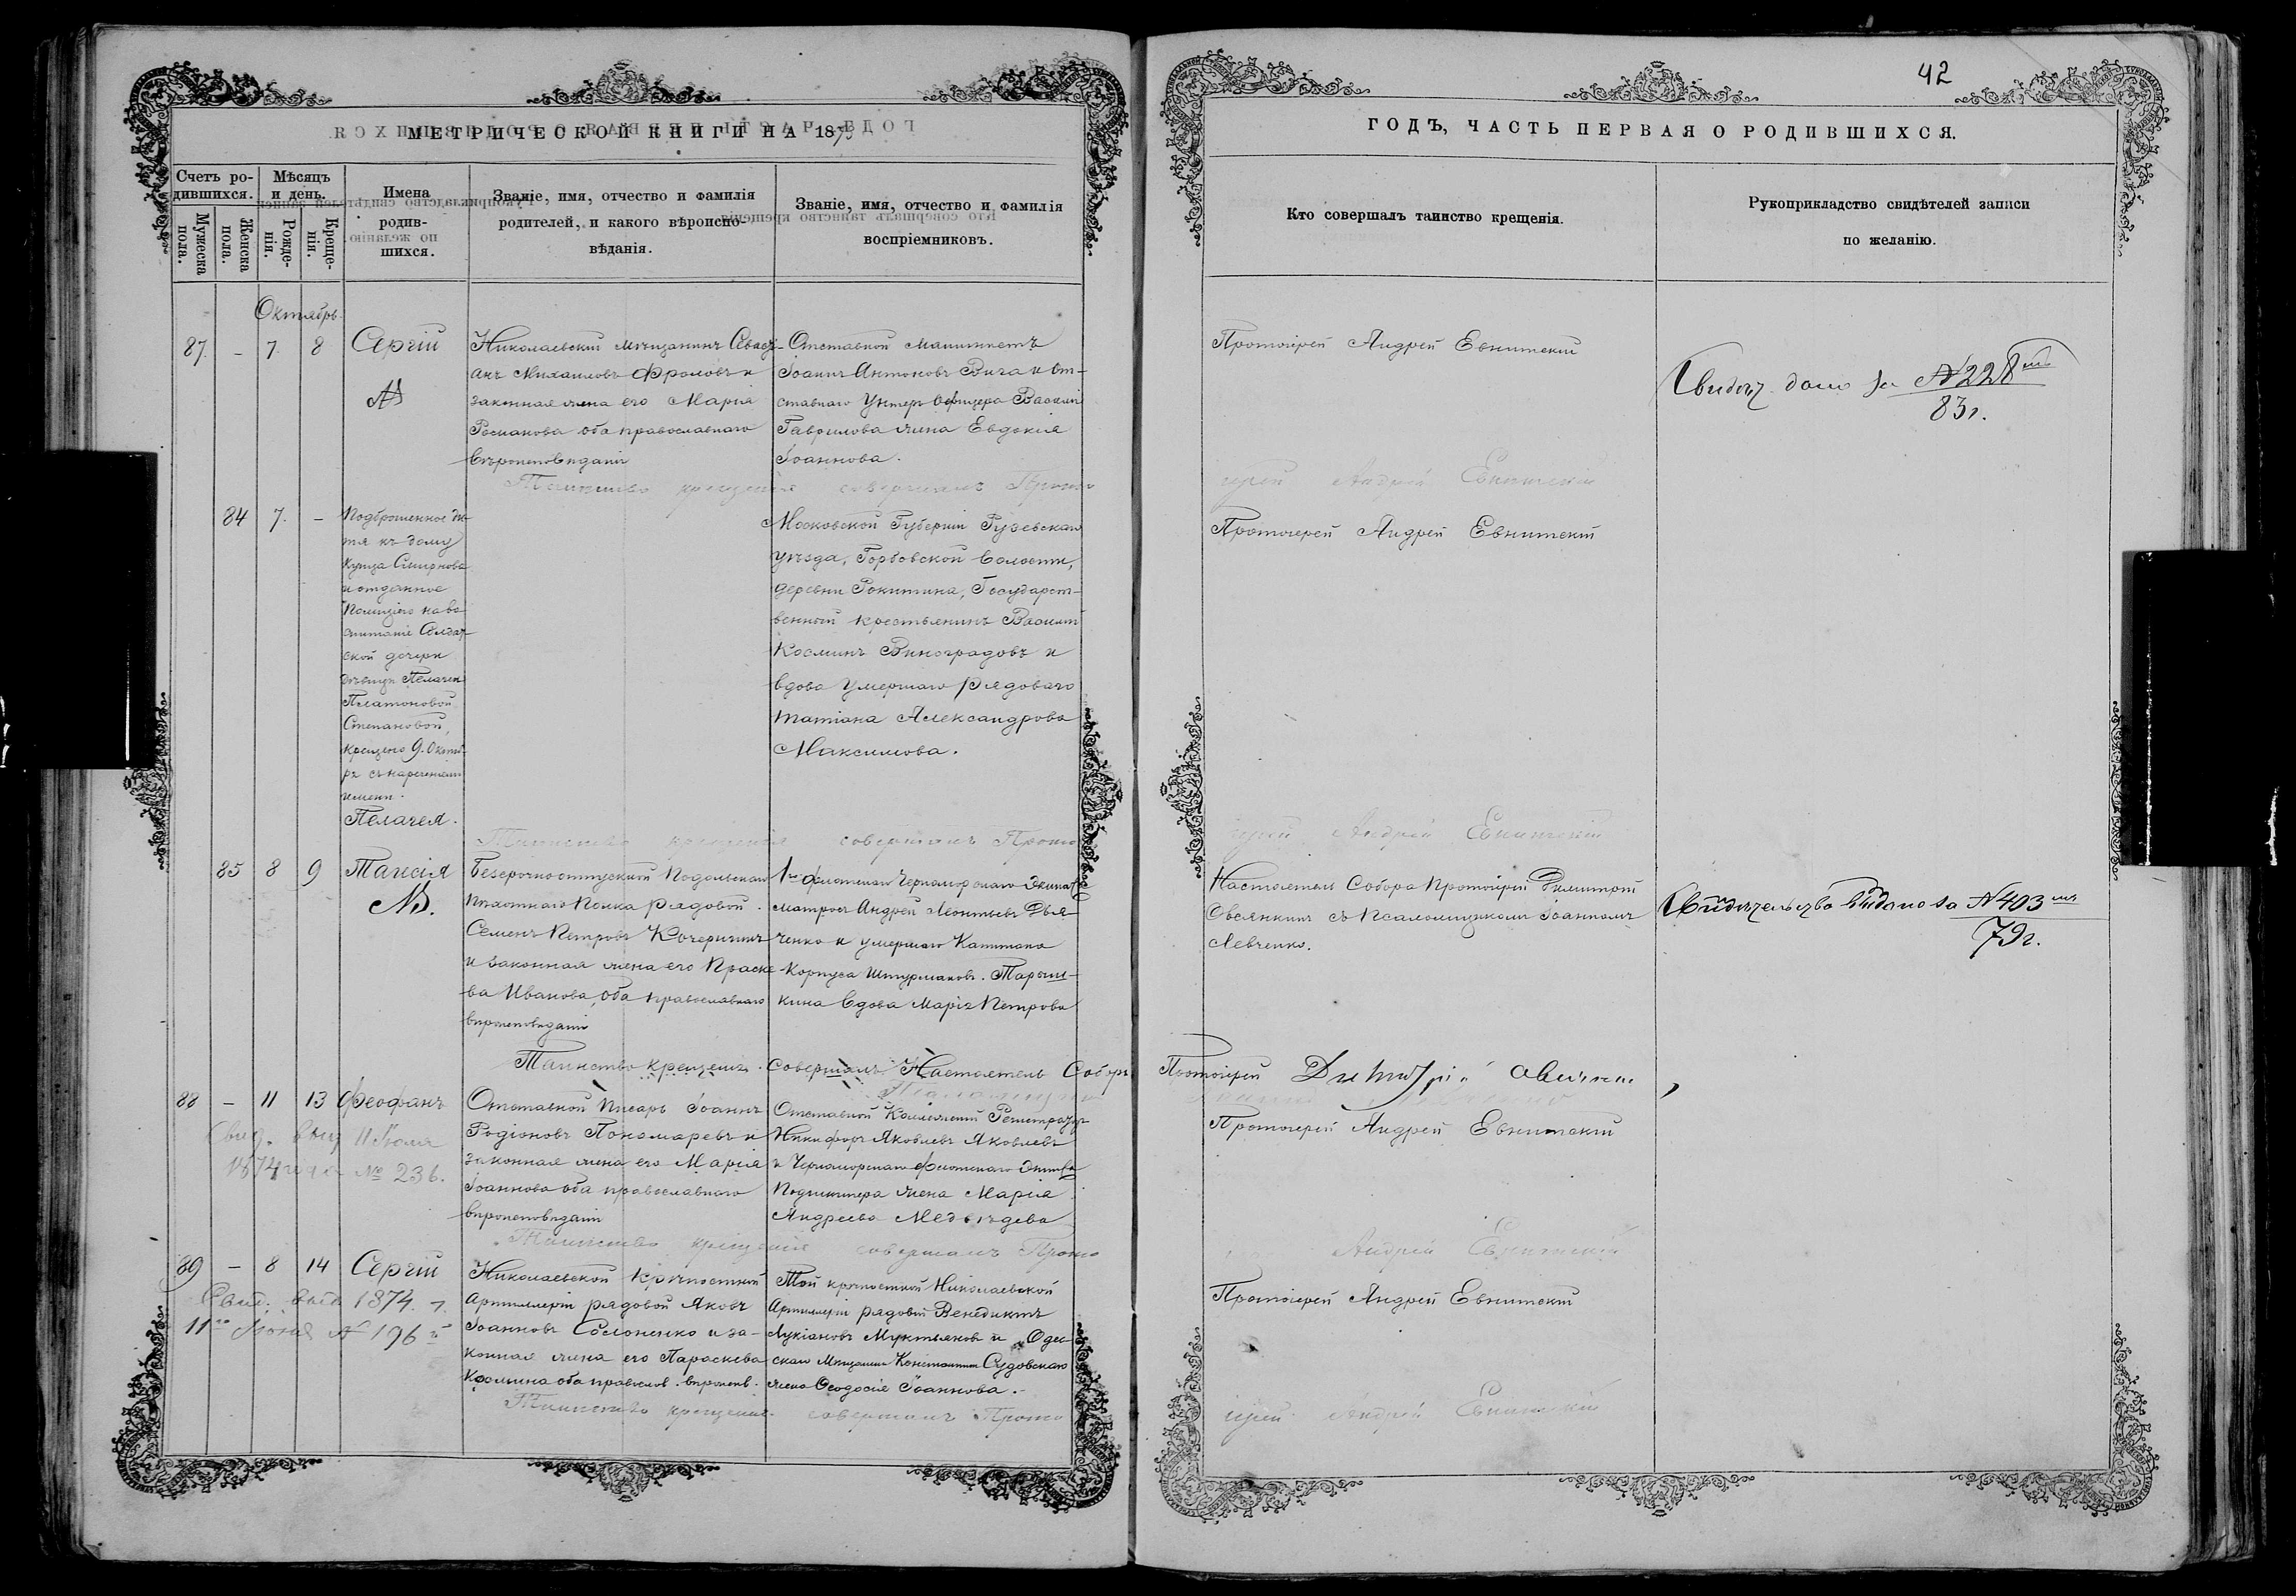 42
МЕТРИЧЕСКОЙ КНИГИ НА 1873
ГОДЪ, ЧАСТЬ ПЕРВАЯ О РОДИВШИХСЯ.
Счетъ родившихся.
Мужеска пола.
Женска пола.
Мѣсяцъ и день.
Рожденія.
Крещенія.
Имена родившихся.
Званіе, имя, отчество и фамилія
родителей, и какого вѣроиспо-
вѣданія.
Званіе, имя, отчество и фамилія
воспріемниковъ.
Кто совершалъ таинство крещенія.
Рукоприкладство свидѣтелей записи
по желанію.
Октябрь
87. – 7. 8 Сергій
Николаевскій мѣщанинъ Севасті-
анъ Михаиловъ Фроловъ и
законная жена его Марія
Романова оба православнаго
вѣроисповѣданія
Отставной
Іоаннъ Антоновъ и от-
ставнаго Унтеръ Офицера Василія
Гаврилова жена Евдокія
Іоаннова.
Протоіерей Андрей Евнитскій
Свидѣт. дано за № 228
83 г.
Таинство крещенія совершалъ Прото
іерей Андрей Евнитскій
84 7. –
Подброшенное ди-
тя къ дому
Купца Смирнова
и отданное
Полиціею на во
спитаніе Солдат-
ской дочери
дѣвицѣ Пелагеи
Платоновой
Степановой,
крещено 9. Октяб
рѧ съ нареченіем
имени
Пелагея.
Московской Губерніи Рузскаго
уѣзда, Горбовской волости,
деревни Рокитина, Государст-
венный крестьянинъ Василій
Косминъ Виноградовъ и
вдова умершаго рядоваго
Татіана Александрова
Максимова.
Протоіерей Андрей Евнитскій
Таинство крещенія совершалъ Прото
іерей Андрей Евнитскій
85 8 9 Таисія
Безсрочноотпускной Подольскаго
Пѣхотнаго Полка рядовой
Семенъ Петровъ
и законная жена его Праске
ва Иванова, оба православнаго
вѣроисповѣданія
1го флотскаго Черноморскаго Экипажа
матросъ Андрей Леонтьевъ Дья-
ченко и умершаго Капитана
Корпуса Штурмановъ
вдова Марія Петрова
Настоятель Собора Протоіерей Димитрій
Овсянкинъ съ Псаломщикомъ Іоанномъ
Левченко.
Свидѣтельство выдано за № 403
79 г.
Таинство крещенія совершалъ Настоятель Собора
Протоіерей Димитрій
88 – 11 13 Феофанъ
Свид. выд. 11 Іюля
1874 года № 236.
Отставной Писарь Іоаннъ
Родіоновъ Пономаревъ и
законная жена его Марія
Іоаннова оба православнаго
вѣроисповѣданія
Отставной Коллежскій Регистраторъ
Никифоръ Яковлевъ Яковлевъ
и Черноморскаго флотскаго Экипажа
жена Марія
Андреева Медвѣдева
Протоіерей Андрей Евнитскій
Таинство крещенія совершалъ Прото
Андрей Евнитскій
89 – 8 14 Сергій
Свид. выд. 1874 г.
11го Іюня № 196
Николаевской крѣпостной
Артиллеріи рядовой Яковъ
Іоанновъ Солоненко и за-
конная жена его Параскева
Космина оба правослов. вѣроисп.
Той крѣпостной Николаевской
Артиллеріи рядовой Венедиктъ
Лукіановъ и Одес-
скаго мѣщанина Константина Судовскаго
жена Феодосія Іоаннова.
Протоіерей Андрей Евнитскій
Таинство крещенія совершалъ Прото
іерей Андрей Евнитскій